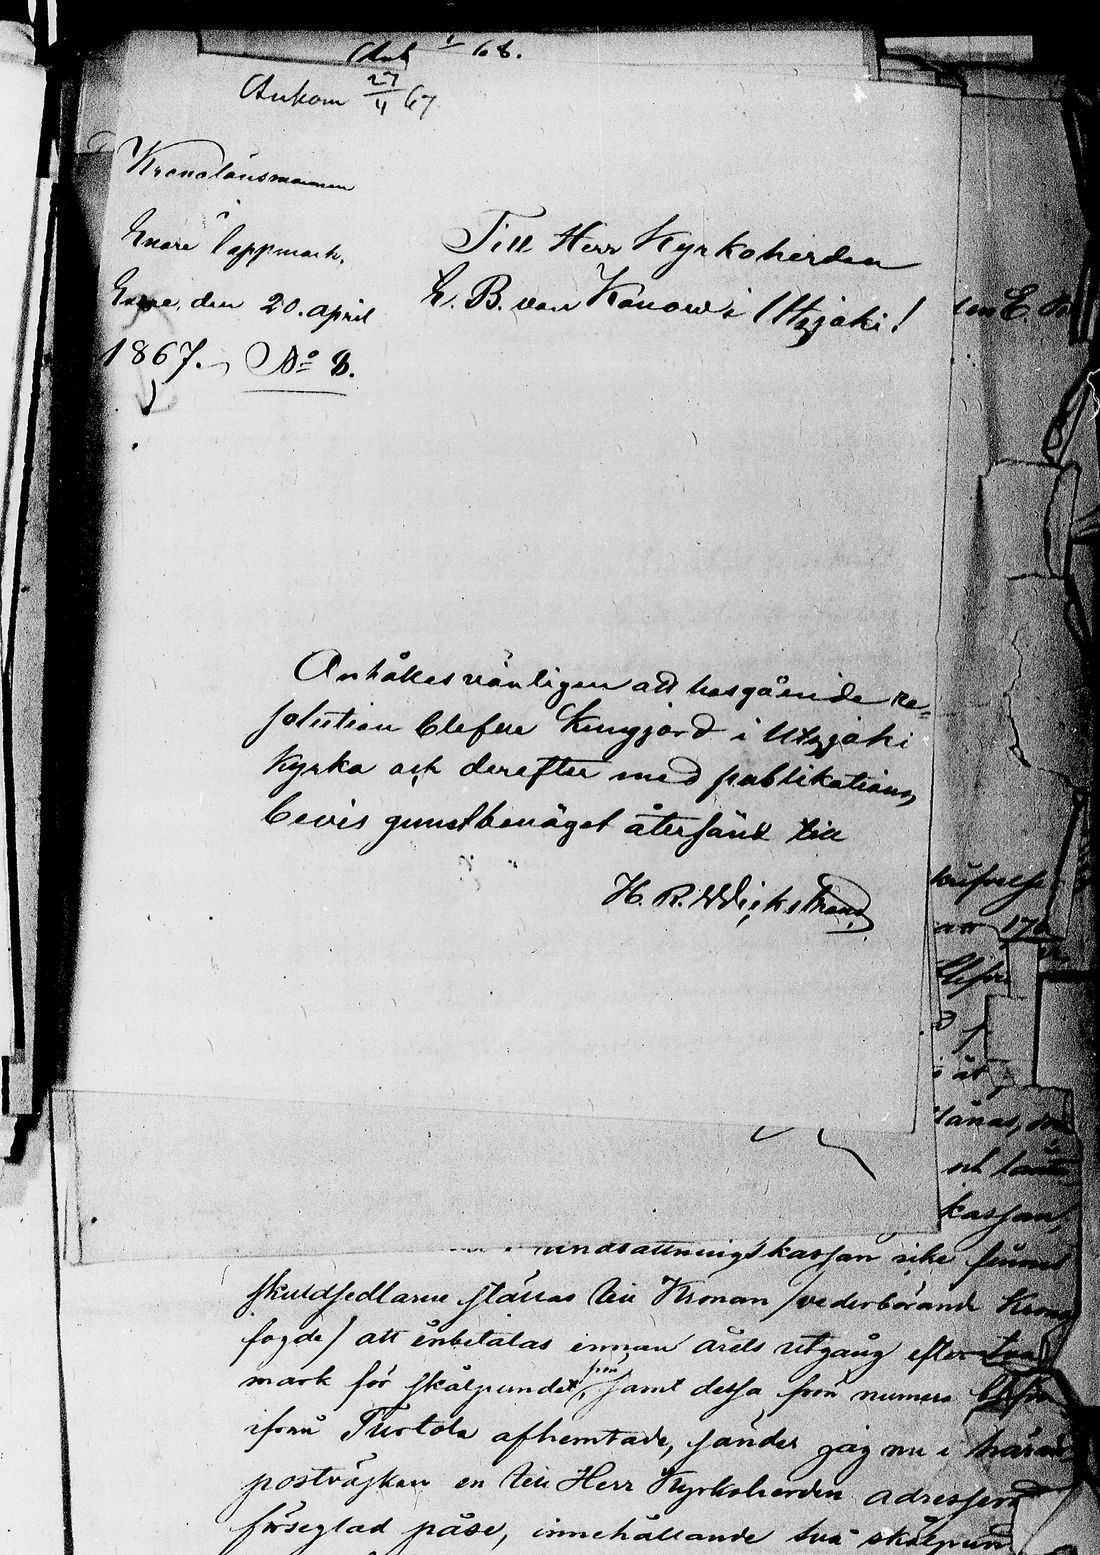 1/68.
Ankom 27/4 67
Kronolänsmannen
Enare Lappmark.
Enare, den 20. april
1867. No 8.
Till Herr Kyrkoherden
E. B. von Konow i Utsjoki!
Anhålles vänligen att hosgående re-
solution blefve kungjord i Utsjoki
kyrka och derefter med publikations
bevis gunstbenäget återsänt till
H. R. Wickstrand
170
kassan,
undsättningskassan icke finnes
skuldsedlarne ställas till Kronan /vederbörande Krono
fogde/ att inbetalas innan årets utgång efter två
mark för skålpundet, samt dessa frön numera blifvit
ifrån Turtola afhemtade, sänder jag nu i
postväskan en till Herr Kyrkoherden adresserad
förseglad påse, innehållande två skålpund